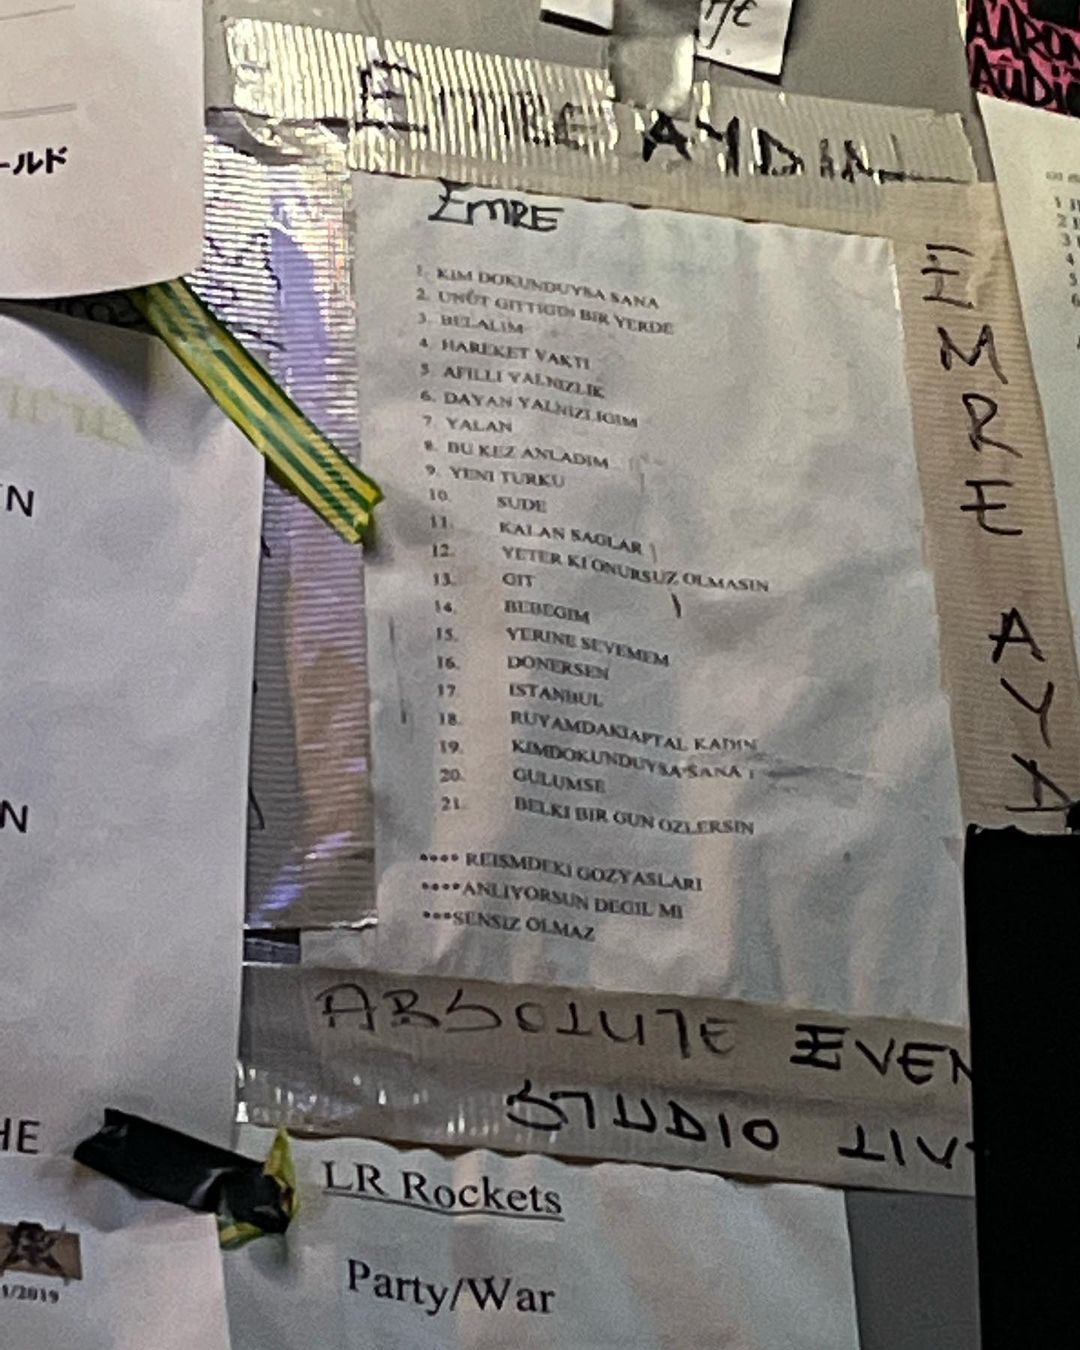 AARON
AUDIO
ールド
EMRE AYDIN
EMRE
1. KIM DOKUNDUYSA SANA
2. UNUT GITTIGIN BIR YERDE
3. BELALIM
4. HAREKET VAKTI
5. AFILLI YALNIZLIK
6. DAYAN YALNIZLIGIM
7. YALAN
8. BU KEZ ANLADIM
9. YENI TURKU
10. SUDE
11. KALAN SAGLAR
12. YETER KI ONURSUZ OLMASIN
13. GIT
14. BEBEGIM
15. YERINE SEVEMEM
16. DONERSEN
17. ISTANBUL
18. RUYAMDAKIAPTAL KADIN
19. KIMDOKUNDUYSA SANA
20. GULUMSE
21. BELKI BIR GUN OZLERSIN
**** REISMDEKI GOZYASLARI
****ANLIYORSUN DEGIL MI
***SENSIZ OLMAZ
EMRE AYD
ABSOLUTE EVEN
STUDIO LIV
N
N
HE
1/2019
LR Rockets
Party/War